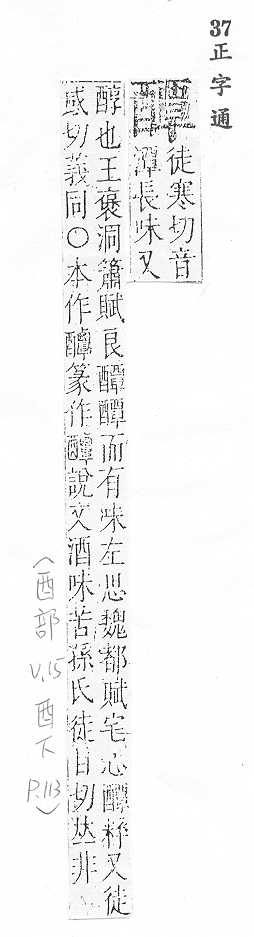 37 正字通
醰
徒寒切音
潭長味又
醇也王褒洞簫賦良醰醰而有味左思魏都賦宅心醰粹又徒
感切義同○本作篆作說文酒味苦孫氏徒甘切丛非
(酉部 V.15 酉下 P.113)